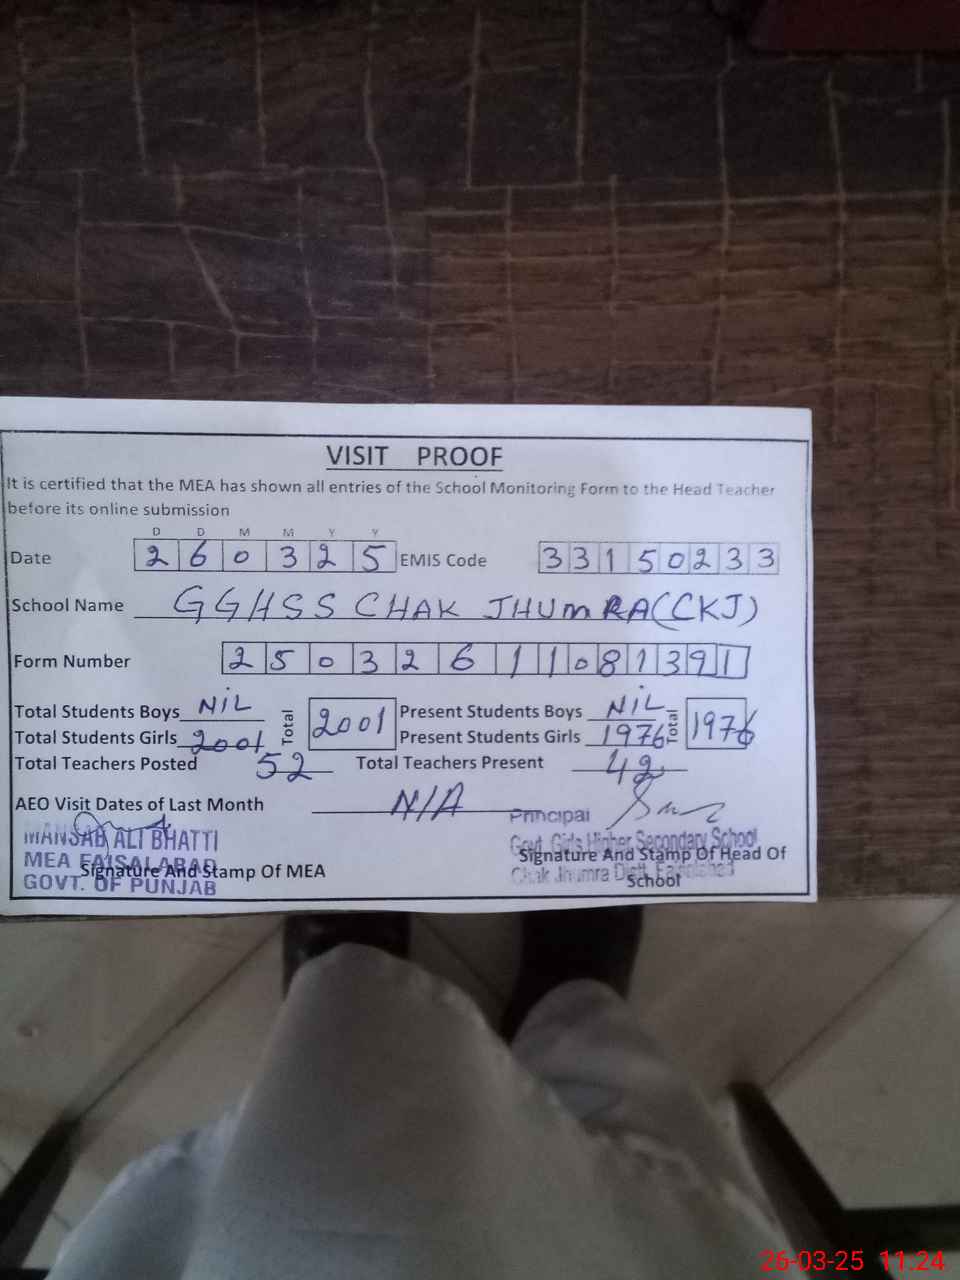 VISIT PROOF
It is certified that the MEA has shown all entries of the School Monitoring Form to the Head Teacher
before its online submission
D D M M Y Y
Date 2 6 0 3 2 5 EMIS Code 3 3 1 5 0 2 3 3
School Name GGHSS CHAK JHUMRA(CKJ)
Form Number 2 5 0 3 2 6 1 1 0 8 1 3 9 1
Total Students Boys NIL Total 2001 Present Students Boys NIL Total 1976
Total Students Girls 2001 Present Students Girls 1976
Total Teachers Posted 52 Total Teachers Present 42
AEO Visit Dates of Last Month N/A
MANSAB ALI BHATTI
MEA FAISALABAD
GOVT. OF PUNJAB
Signature And Stamp Of MEA
Principal
Govt. Girls Higher Secondary School
Chak Jhumra Distt. Faisalabad
Signature And Stamp Of Head Of
School
26-03-25 11:24